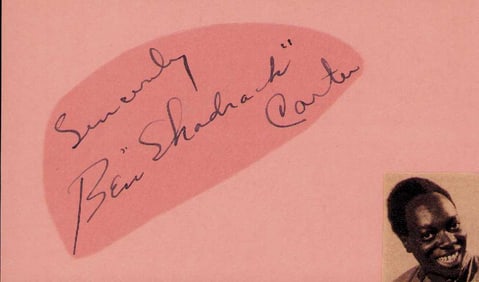 Sincerely
Ben "Shadrach"
Carter